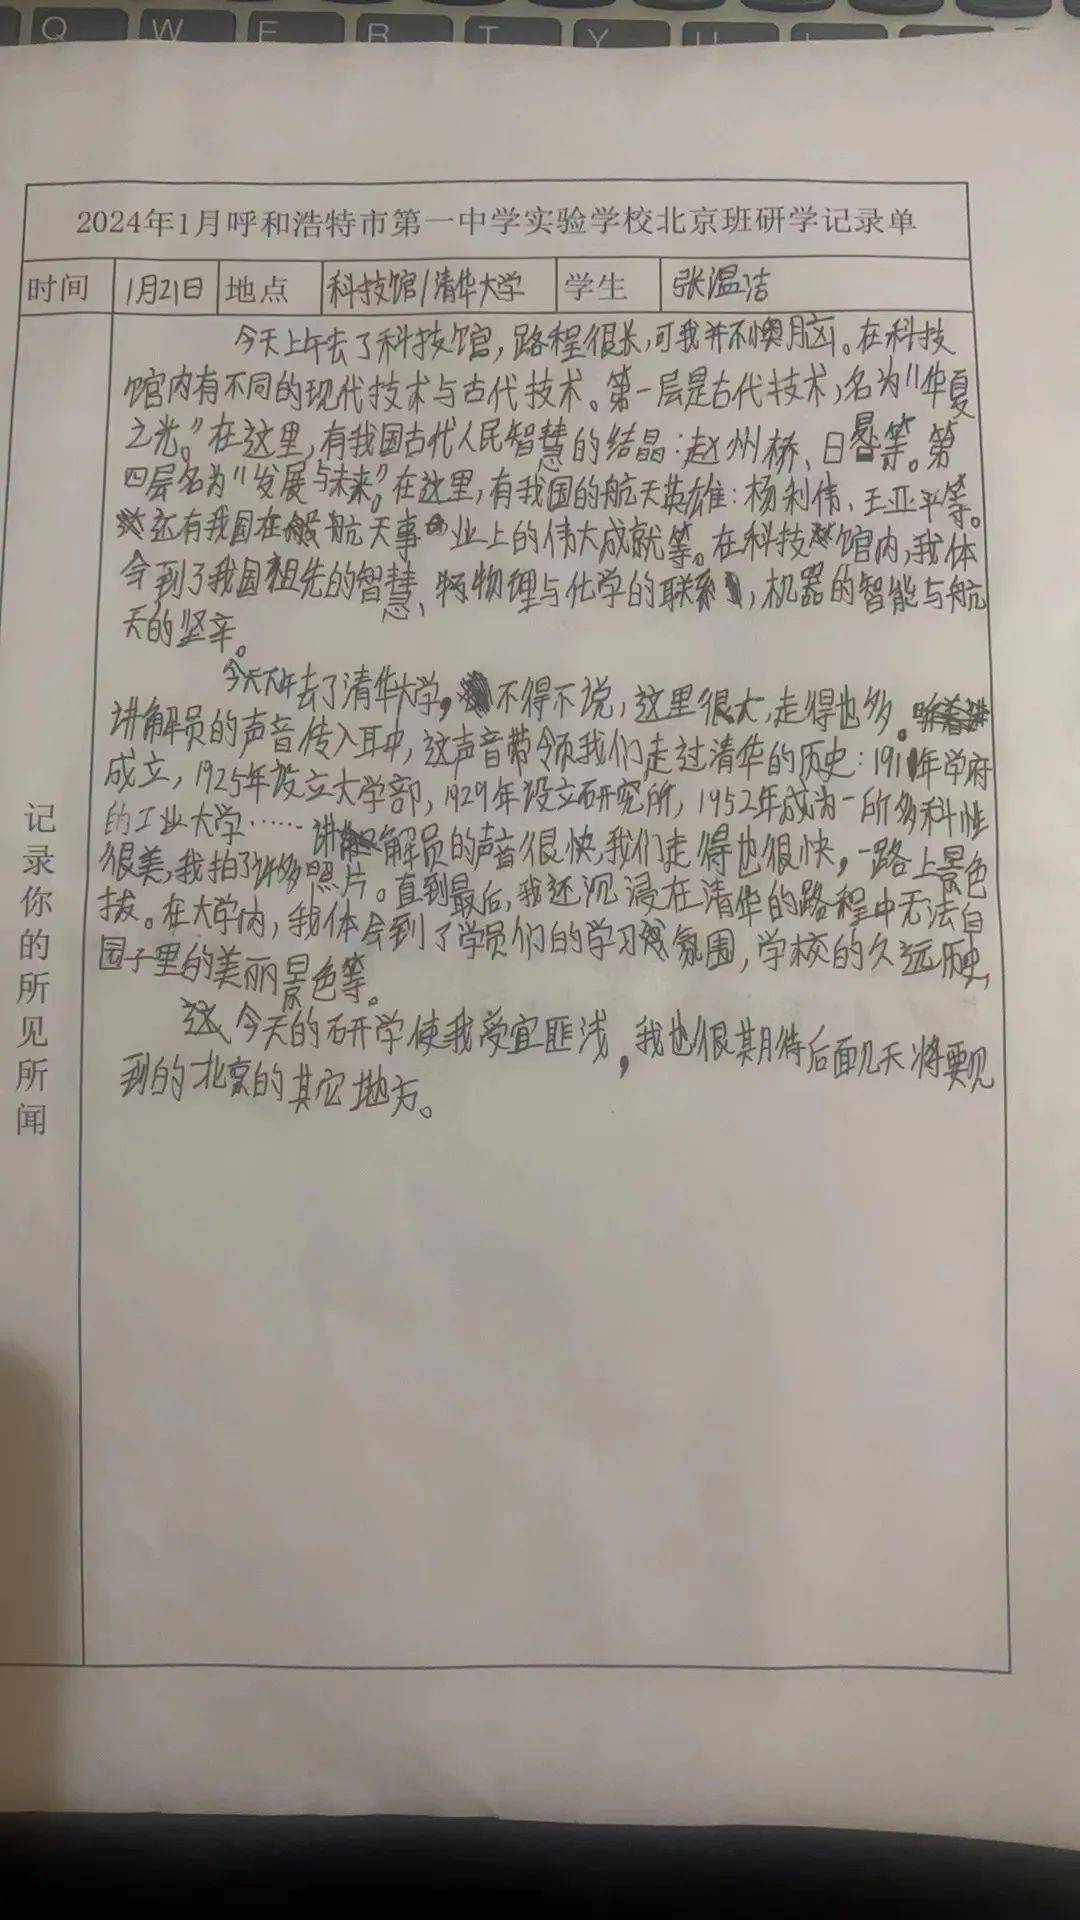 Q W E R T Y U
2024年1月呼和浩特市第一中学实验学校北京班研学记录单
时间 1月21日 地点 科技馆/清华大学 学生 张温洁
今天上午去了科技馆，路程很长，可我并不懊脑。在科技
馆内有不同的现代技术与古代技术。第一层是古代技术，名为“华夏
之光。”在这里，有我国古代人民智慧的结晶：赵州桥、日晷等。第
四层名为“发展与未来”。在这里，有我国的航天英雄：杨利伟、王亚平等。
还有我国在航天事业上的伟大成就等。在科技馆内，我体
会到了我国祖先的智慧、物理与化学的联系，机器的智能与航
天的坚辛。
今天下午去了清华大学，不得不说，这里很大，走得也多。
讲解员的声音传入耳中，这声音带领我们走过清华的历史：1911年学府
成立，1925年设立大学部，1929年设立研究所，1952年成为一所多科性
的工业大学……讲解员的声音很快，我们走得也很快，一路上景色
很美，我拍了许多照片。直到最后，我还沉浸在清华的路程中无法自
拔。在大学内，我体会到了学员们的学习氛围，学校的久远历史，
园子里的美丽景色等。
今天的研学使我受宜匪浅，我也很期待后面几天将要见
到的北京的其它地方。
记录你的所见所闻